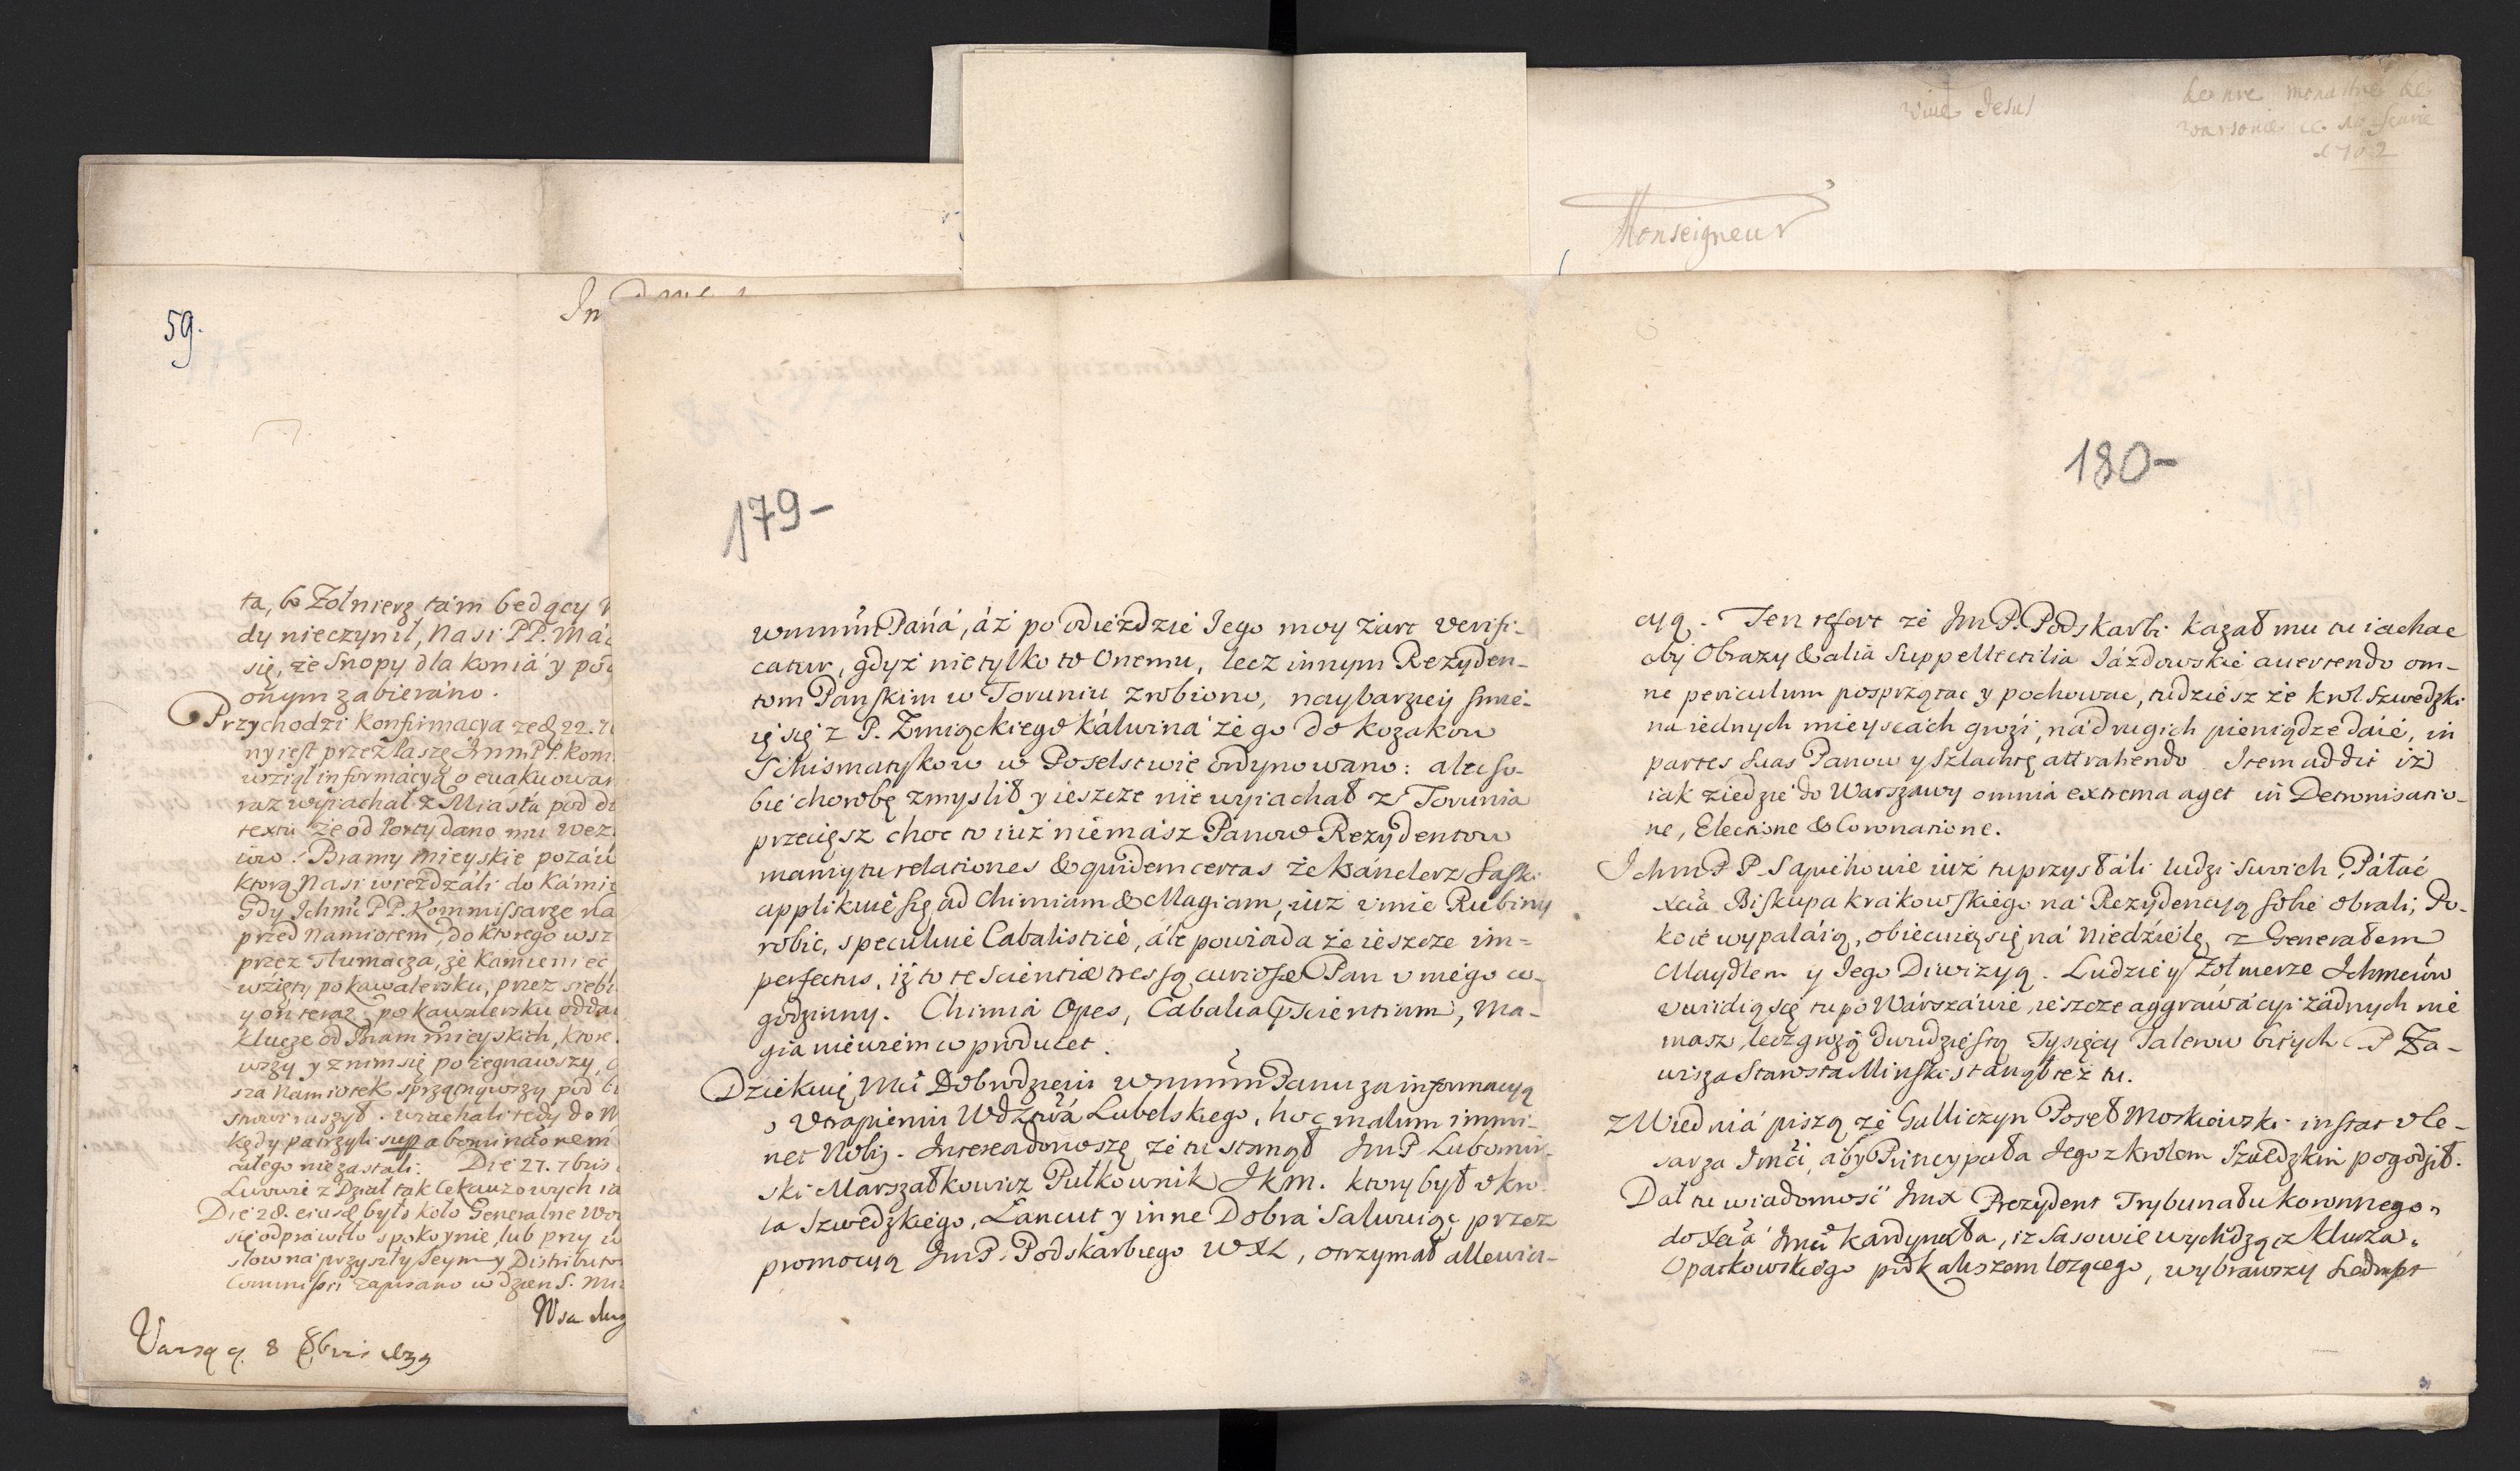 59.
ta, bo Żołnierz tam będący
dy nieczynił, Nasi PP.
się, że Snopy dla konia y
onym zabierano.
Przychodzi Konfirmacya
ny iest przez Łaszę ImmPP. Kom
wziął informacyą o evakuowan
raz wyiachał z Miasta pod
textu że od Porty dano mu
Bramy mieyskie
ktorą Nasi wieżdzali do
Gdy Ichmć PP. Kommissarze na
przed Namiotem, do ktorego wsz
przez Tłumacza, że Kamieniec
wzięty po kawalersku, przez
y on teraz po kawalersku
klucze od Bram mieyskich, ktore
wszy y z nim się pożegnawszy,
Namiotek sprzątnąwszy pod
ruszył. wiachali tedy do
kędy patrzyli
całego nie zastali. Die 27. 7bris
Lwowie z Dział tak
Die 28. było koło Generalne
się odprawiło spokoynie, lub przy
na przyszły Seym y
zapisano w dzien S.
8 8bris
Vive Jesus
de nre monastre de
1702
Monseigneur
179-
wmmm Paná, áż po odieździe Jego moy żart verifi-
catur, gdyż nie tylko to Onemu, lecz innym Rezyden-
tom Panskim w Toruniu zrobiono, naybarziey smie-
ią się z P. Zmiąckiego Kálwiná że go do Kozakow
Schismatykow w Poselstwie ordynowano: ale so-
bie chorobę zmyslił y ieszcze nie wyiachał z Torunia
przecięsz choc tu iuż niemász Panow Rezydentow
mamy tu relationes & quidem certas że Kánclerz Saski
applikuie się ad Chimiam & Magiam, iuż umie Rubiny
robic, speculuie Cabalisticè, ále powiada że ieszcze im-
perfectus, iż to te scientiæ tres są curiosæ Pan u niego co-
godzinny. Chimia Opes, Cabala scientiam, Ma-
gia niewiem co producet.
Dziękuię Mći Dobrodzieiu wmmm Panu za informacyą
o utrapieniu Wdztwá Lubelskiego, hoc malum immi-
net Nobis. Interea donoszę że tu stanął JmP Lubomir-
ski Marszałkowicz Pułkownik JKM. ktory był u kro-
la Szwedzkiego, Lancut y inne Dobra salwuiąc przez
promocyą JmP. Podskarbiego WXL, otrzymał allevia-
180-
cyą. Ten refert że JmP. Podskarbi kazał mu tu iachac
aby Obrazy & alia Suppellectilia Jázdowskie avertendo om-
ne periculum posprzątac y pochowac, tudziesz że krol Szwedzki
na iednych mieyscách grozi, ná drugich pieniądze dáie, in
partes suas Panow y Szlachtę attrahendo. Item addit iż
iak ziedzie do Warszawy omnia extrema aget in Detronisatio-
ne, Electione & Coronatione.
Ichm PP. Sapiehowie iuż tu przysłáli ludzi swich, Páłac
Xcia Biskupa krakowskiego ná Rezydencyą sobie obrali, Po-
koie wypaláią, obiecuią się ná Niedzielę z Generałem
Maydlem y Jego Diwizyą. Ludzie y Żołnierze Ichmciow
uwidią się tu po Wárszáwie, ieszcze aggrawácyi żadnych nie
masz, lecz grożą dwudziestą Tysięcy Talerow bitych. P Za-
wisza Starosta Minski stanął też tu.
z Wiednia piszą że Galliczyn Poseł Moskiewski instat u Ce-
sarza Jmći, aby Pryncypała Jego z krolem Szwedzkim pogodził.
Dał tu wiadomość JmX Prezydent Trybunału koronnego
do Xcia Jmći Kardynała, iż Sasowie wychodzą z Klucza
Opatowskiego pod Kaliszem leżącego, wybrawszy